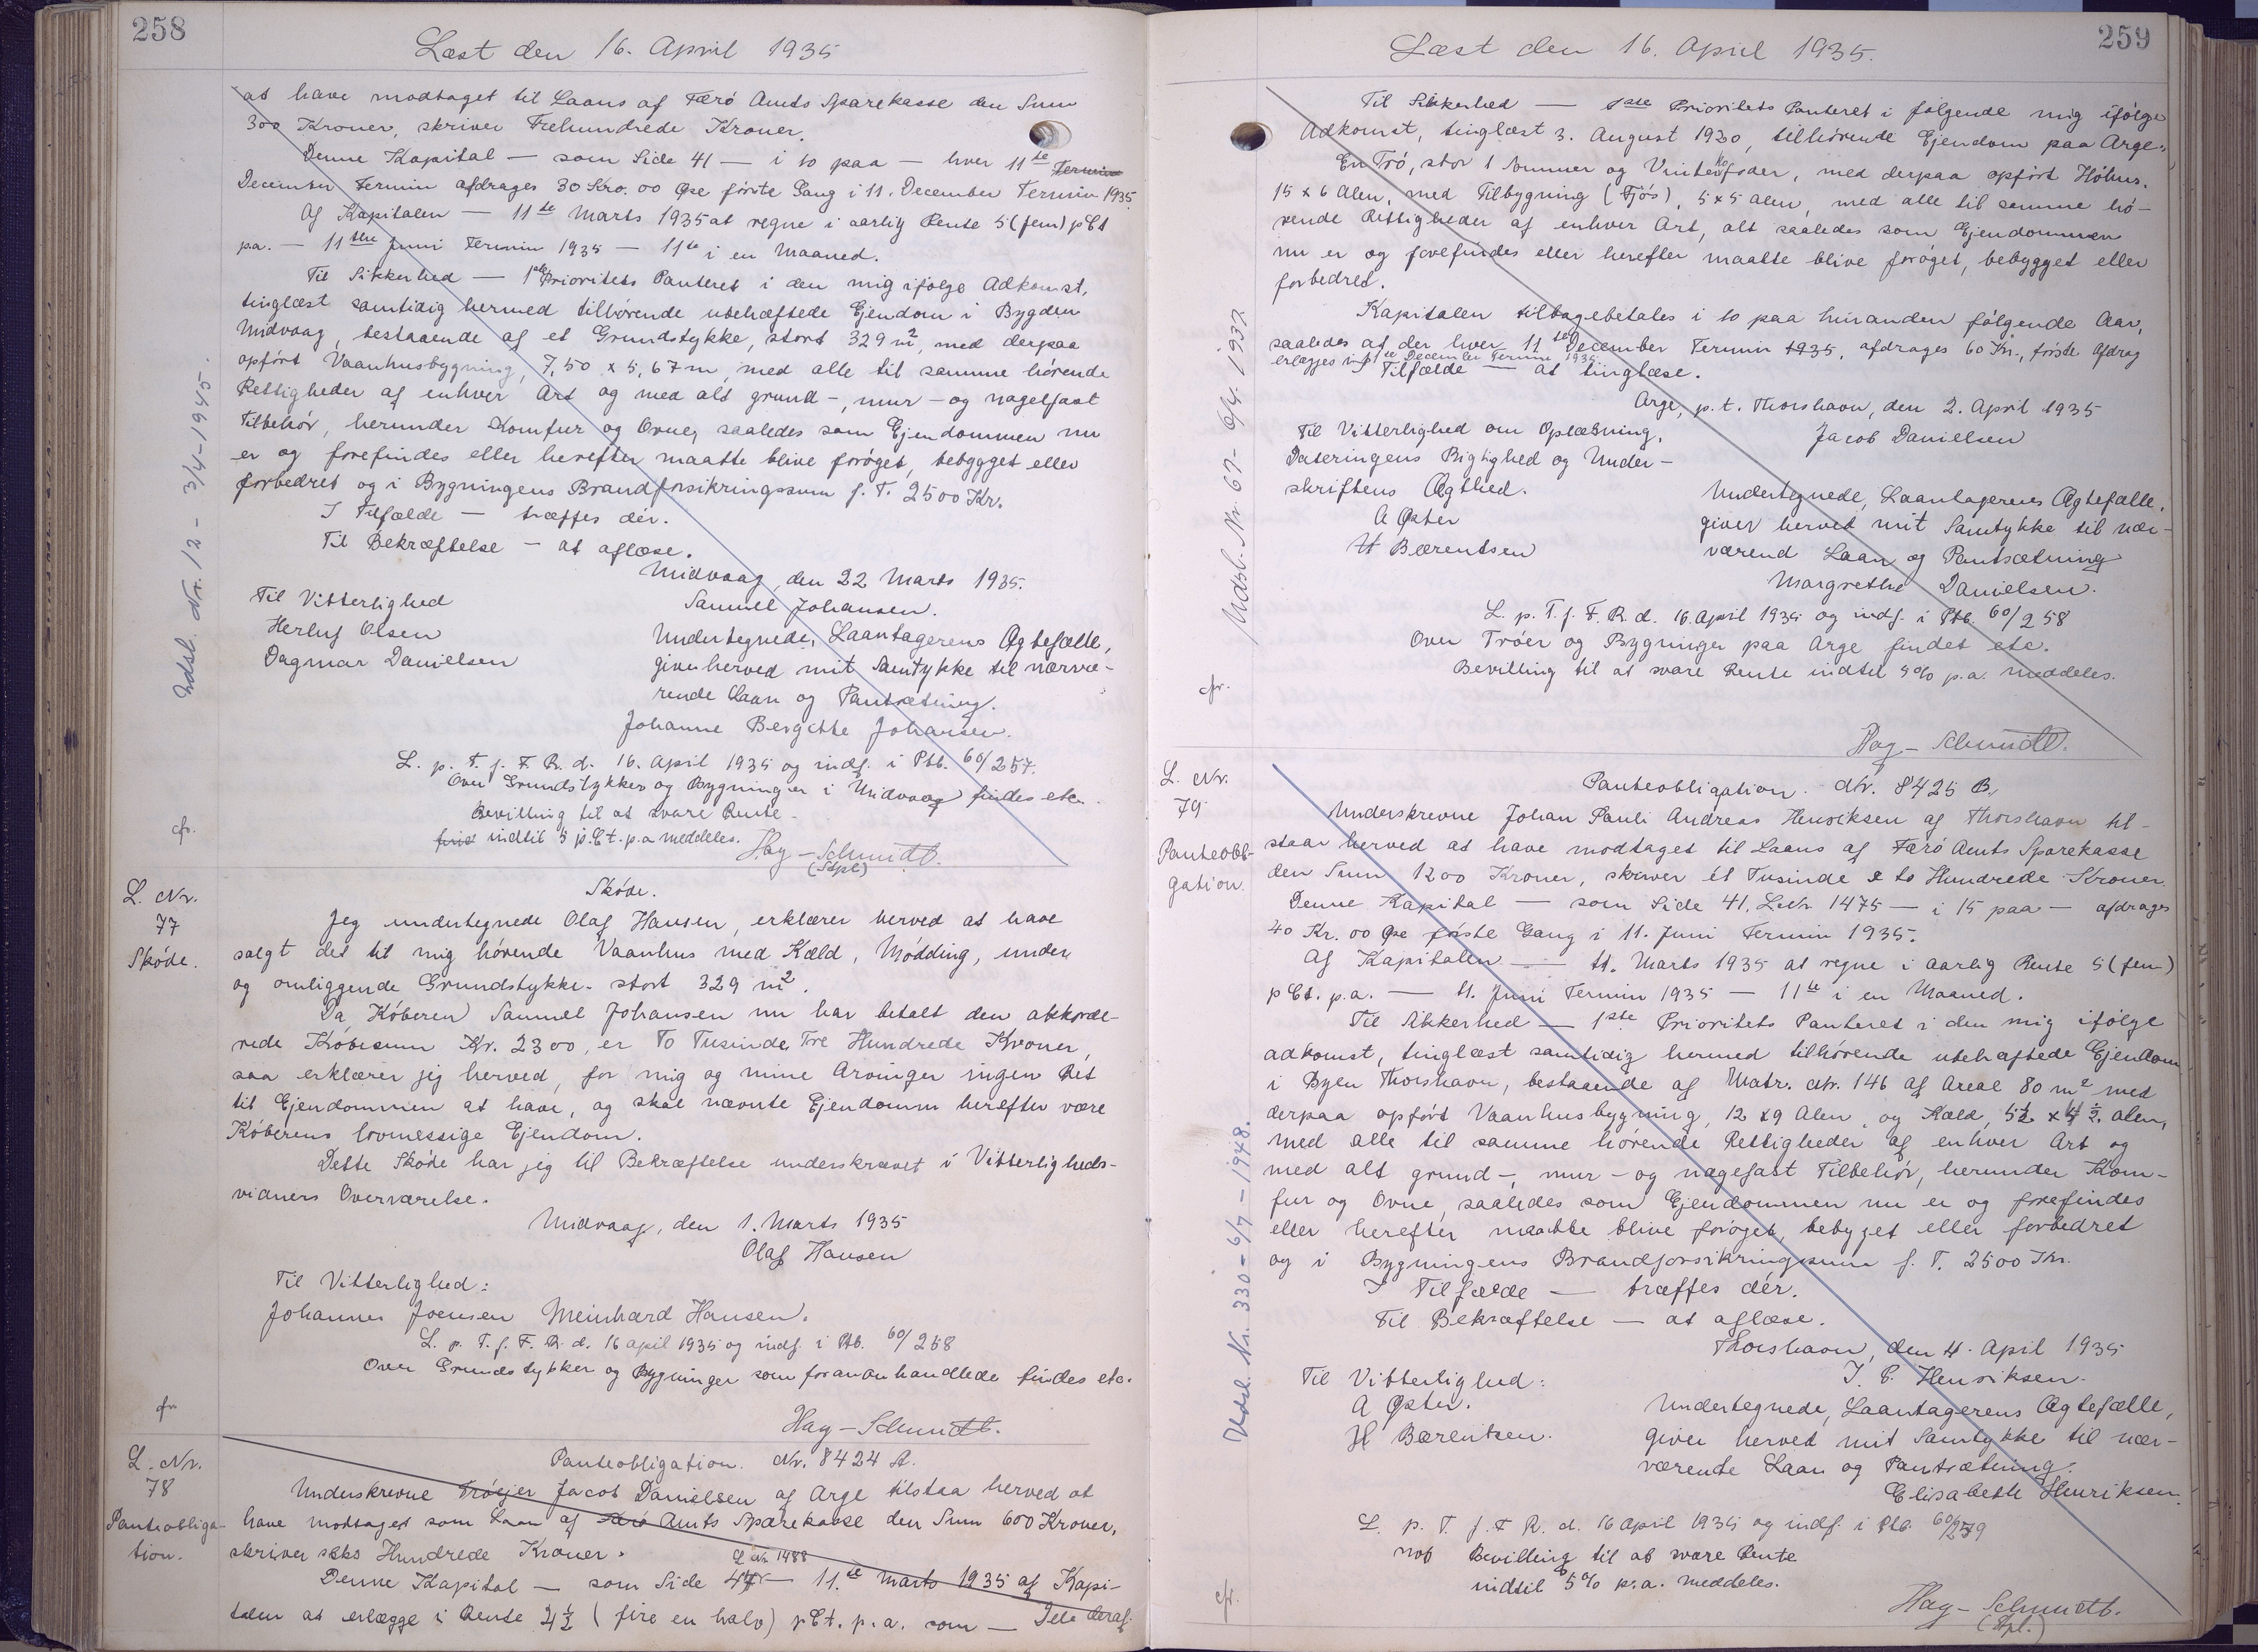 258
Læst den 16. April 1935
at have modtaget til Laans af Færö Amts Sparekasse den Sum
300 Kroner, skriver Trehundrede Kroner.
Denne Kapital — som Side 41 — i 10 paa — hver 11te Termin
December Termin afdrages 30 Kro. 00 Øre förste Gang i 11. December Termin 1935
Af Kapitalen — 11te Marts 1935 at regne i aarlig Rente 5 (fem) pCt
p.a. — 11the Juni Termin 1935 — 11te i en Maaned.
Til Sikkerhed — 1ste Prioritets Panteret i den mig ifölge Adkomst,
tinglæst samtidig hermed tilhörende ubehæftede Ejendom i Bygden
Midvaag, bestaaende af et Grundstykke, stort 329 m2, med derpaa
opfört Vaanhusbygning, 7,50 x 5,67 m, med alle til samme hörende
Rettigheder af enhver Art og med alt grund-, mur- og nagelfast
Tilbehör, herunder Komfur og Ovne, saaledes som Ejendommen nu
er og forefindes eller herefter maatte blive foröget, bebygget eller
forbedret og i Bygningens Brandforsikringssum f. T. 2500 Kr.
I Tilfælde — træffes dér.
Til Bekræftelse — at aflæse.
Midvaag, den 22 Marts 1935.
Til Vitterlighed
Samuel Johansen.
Herluf Olsen
Dagmar Danielsen
Undertegnede, Laantagerens Ægtefælle,
giver herved mit Samtykke til nærvæ-
rende Laan og Pantsætning.
Johanne Bergitte Johansen.
L. p. T. f. F. R. d. 16. April 1935 og indf. i Ptb. 60/257.
Over Grundstykker og Bygninger i Midvaag findes etc.
Bevilling til at svare Rente
indtil 5 p.Ct. p.a meddeles.
cfr.
Hay-Schmidt.
(Stpl)
Udsl. Nr. 12 - 3/4-1945.
L. Nr.
77
Sköde.
Sköde.
Jeg undertegnede Olaf Hansen, erklærer herved at have
solgt det til mig hörende Vaanhus med Kæld, Mödding, under
og omliggende Grundstykke- stort 329 m2.
Da Köberen Samuel Johansen nu har betalt den akkorde-
rede Köbesum Kr. 2300, er To Tusinde Tre Hundrede Kroner,
saa erklærer jeg herved, for mig og mine Arvinger ingen Ret
til Ejendommen at have, og skal nævnte Ejendomm herefter være
Köberens lovmessige Ejendom.
Dette Sköde har jeg til Bekræftelse underskrevet i Vitterligheds-
vidners Overværelse.
Midvaag, den 1. Marts 1935
Olaf Hansen
Til Vitterlighed:
Johannes Joensen Meinhard Hansen.
L. p. T. f. F. R. d. 16 april 1935 og indf. i Ptb. 60/258
Over Grundstykker og Bygninger som foran omhandlede findes etc.
cfr
Hay-Schmidt.
L. Nr.
78
Panteobliga-
tion.
Panteobligation. Nr. 8424 A.
Underskrevne Tröejer Jacob Danielsen af Arge tilstaa herved at
have modtaget som Laan af Færö Amts Sparekasse den Sum 600 Kroner,
skriver seks Hundrede Kroner.
L Nr 1488
Denne Kapital — som Side 47 — 11.te Marts 1935 af Kapi-
talen at erlægge i Rente 4½ (fire en halv) pCt. p.a. som — Dele deraf.
259
Læst den 16. April 1935.
Til Sikkerhed — 1ste Prioritets Panteret i følgende mig ifölge
Adkomst, tinglæst 3. August 1930, tilhörende Ejendom paa Arge:
En Trö, stor 1 Sommer og Vinterkofoder, med derpaa opfört Höhus.
15 x 6 Alen, med Tilbygning (Fjós), 5 x 5 alen, med alle til samme hö-
rende Rettigheder af enhver Art, alt saaledes som Ejendommen
nu er og forefindes eller herefter maatte blive foröget, bebygget eller
forbedret.
Kapitalen tilbagebetales i 10 paa hinanden fölgende Aar,
saaledes at der hver 11te December Termin 1935, afdrages 60 Kr., förste Afdrag
erlægges i 11te December Termin 1935.
I Tilfælde — at tinglæse.
Arge, p. t. Thorshavn, den 2. April 1935
Til Vitterlighed om Oplæsning,
Jacob Danielsen
Dateringens Rigtighed og Under-
skriftens Ægthed.
A Øster
H Bærentsen
Undertegnede, Laantagerens Ægtefælle,
giver herved mit Samtykke til nær-
værend Laan og Pantsætning
Margrethe Danielsen.
L. p. T. f. F. R. d. 16 April 1935 og indf. i Ptb. 60/258
Over Tröer og Bygninger paa Arge findet etc.
Bevilling til at svare Rente indtil 5% p.a. meddeles.
cfr.
Hay-Schmidt.
Udsl. Nr 67- 6/4. 1937.
L. Nr.
79
Panteobli-
gation.
Panteobligation. Nr. 8425 B.
Underskrevne Johan Pauli Andreas Henriksen af Thorshavn til-
staar herved at have modtaget til Laans af Færö Amts Sparekasse
den Sum 1200 Kroner, skriver ét Tusinde e to Hundrede Kroner.
Denne Kapital — som Side 41. L.Nr 1475 — i 15 paa — afdrages
40 Kr. 00 Øre förste Gang i 11. Juni Termin 1935.
Af Kapitalen — 11. Marts 1935 at regne i aarlig Rente 5 (fem)
pCt. p.a. — 11. Juni Termin 1935 — 11te i en Maaned.
Til Sikkerhed — 1ste Prioritets Panteret i den mig ifölge
adkomst, tinglæst samtidig hermed tilhörende ubehæftede Ejendom
i Byen Thorshavn, bestaaende af Matr. Nr. 146 af Areal 80 m2 med
derpaa opfört Vaanhusbygning, 12 x 9 Alen, og Kæld, 5½ x 4½ alen,
med alle til samme hörende Rettigheder af enhver Art og
med alt grund-, mur- og nagefast Tilbehör, herunder Kom-
fur og Ovne, saaledes som Ejendommen nu er og forefindes
eller herefter maatte blive foröget, bebyget eller forbedret
og i Bygningens Brandforsikringssum f. T. 2500 Kr.
I Tilfælde — træffes dér.
Til Bekræftelse — at aflæse.
Thorshavn, den 4. April 1935
Til Vitterlighed:
J. P. Henriksen.
A Øster.
H Bærentsen.
Undertegnede, Laantagerens Ægtefælle,
giver herved mit Samtykke til nær-
værende Laan og Pantsætning.
Elisabeth Henriksen.
L. p. T. f. F R. d. 16 april 1935 og indf. i Ptb. 60/259
Bevilling til at svare Rente
indtil 5% p.a. meddeles.
cfr.
Hay-Schmidt.
(Stpl.)
Udsl. Nr. 330 - 6/7 - 1948.